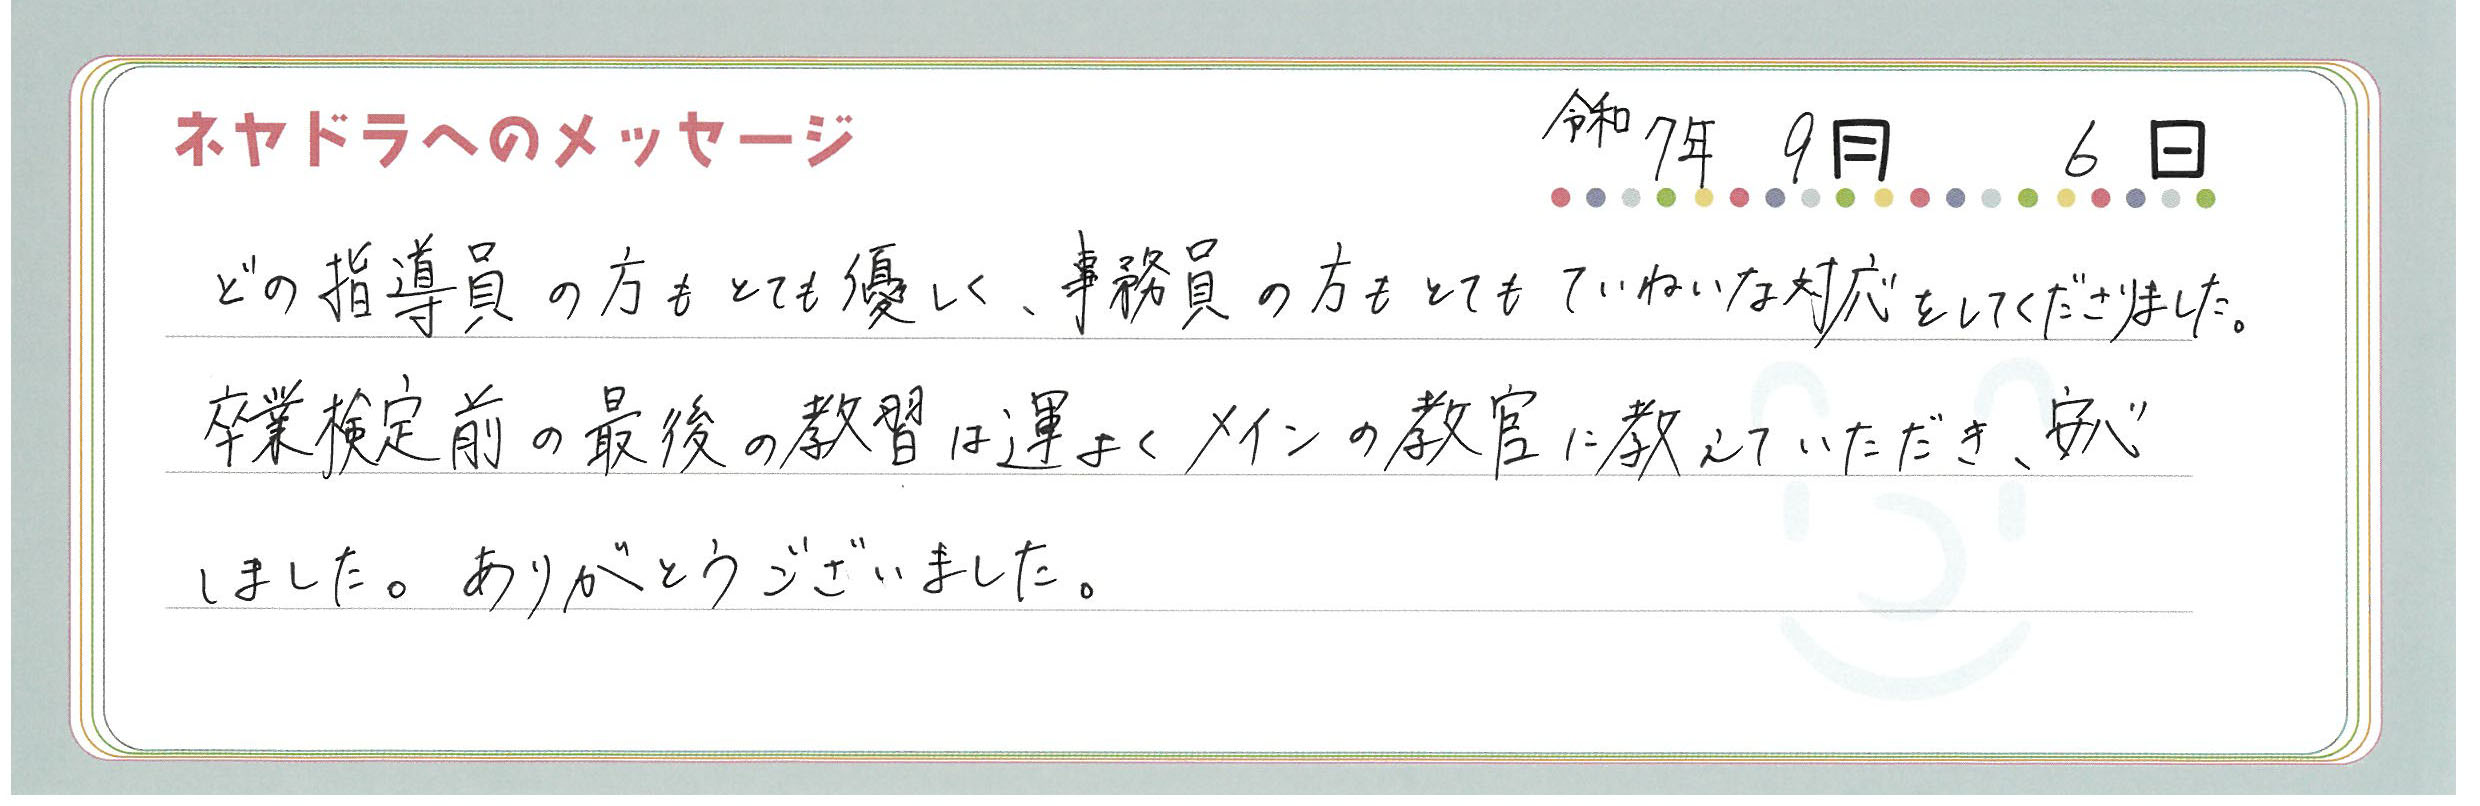 ネヤドラへのメッセージ
令和7年 9月 6日
どの指導員の方もとても優しく、事務員の方もとてもていねいな対応をしてくださりました。
卒業検定前の最後の教習は運よくメインの教官に教えていただき、安心
しました。ありがとうございました。